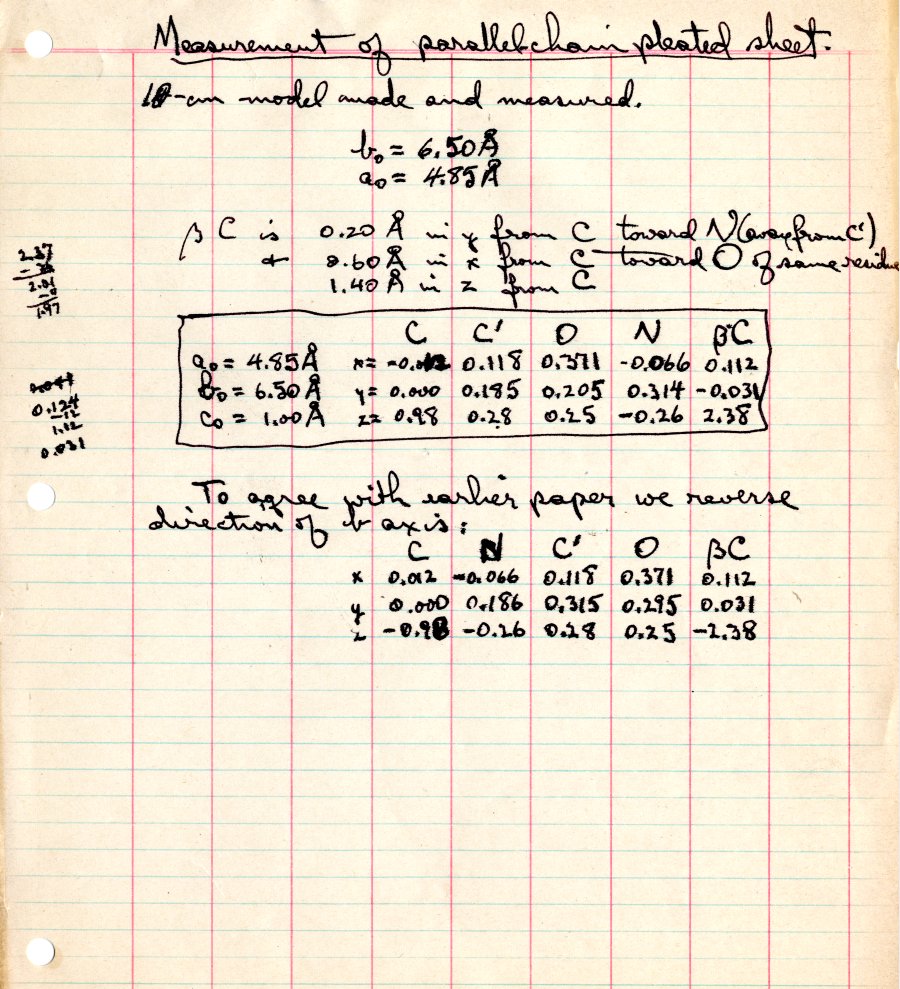 Measurement of parallel-chain pleated sheet.
10-cm model made and measured.
b₀ = 6.50 Å
a₀ = 4.85 Å
β C is 0.20 Å in y from C toward N (away from C')
+ 0.60 Å in x from C toward O of same residue
1.40 Å in z from C
2.37
2.01
1.97
C C' O N βC
a₀ = 4.85 Å x = -0.012 0.118 0.371 -0.066 0.112
b₀ = 6.50 Å y = 0.000 0.185 0.205 0.314 -0.031
c₀ = 1.00 Å z = 0.98 0.28 0.25 -0.26 2.38
0.124
1.12
0.031
To agree with earlier paper we reverse
direction of b axis:
C N C' O βC
x 0.012 -0.066 0.118 0.371 0.112
y 0.000 0.186 0.315 0.295 0.031
z -0.98 -0.26 0.28 0.25 -2.38